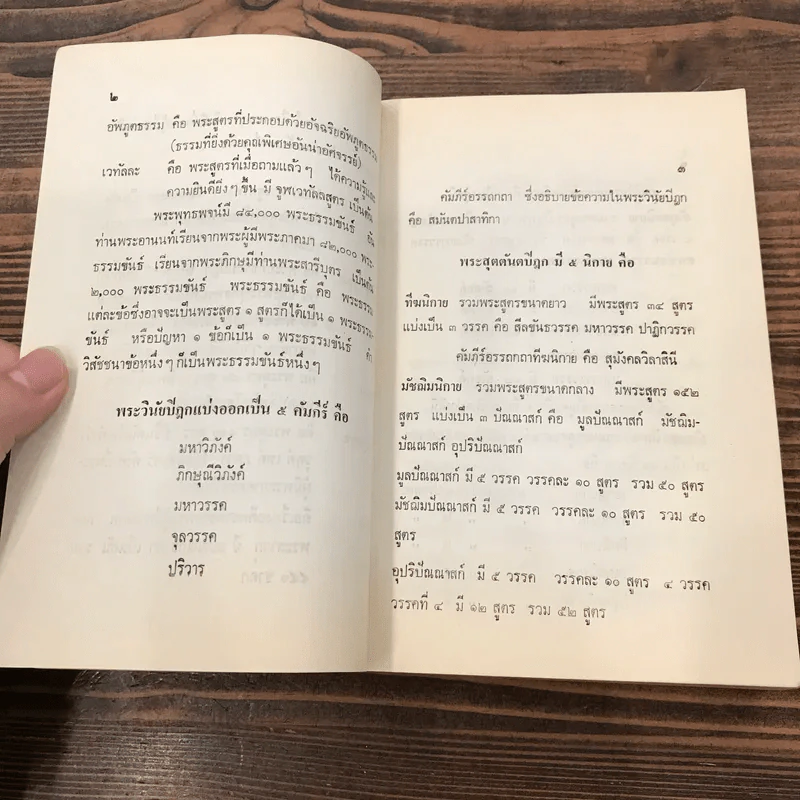 ๒
อัพภูตธรรม คือ พระสูตรที่ประกอบด้วยอัจฉริยอัพภูตธรรม
(ธรรมที่ยิ่งด้วยคุณพิเศษอันน่าอัศจรรย์)
เวทัลละ คือ พระสูตรที่เมื่อถามแล้วๆ ได้ความรู้และ
ความยินดียิ่งๆ ขึ้น มี จูฬเวทัลลสูตร เป็นต้น
พระพุทธพจน์มี ๘๔,๐๐๐ พระธรรมขันธ์ อัน
ท่านพระอานนท์เรียนจากพระผู้มีพระภาคมา ๘๒,๐๐๐ พระ-
ธรรมขันธ์ เรียนจากพระภิกษุมีท่านพระสารีบุตร เป็นต้น
๒,๐๐๐ พระธรรมขันธ์ พระธรรมขันธ์ คือ พระธรรม
แต่ละข้อซึ่งอาจจะเป็นพระสูตร ๑ สูตรก็ได้เป็น ๑ พระธรรม-
ขันธ์ หรือปัญหา ๑ ข้อก็เป็น ๑ พระธรรมขันธ์ คำ
วิสัชชนาข้อหนึ่งๆ ก็เป็นพระธรรมขันธ์หนึ่งๆ
พระวินัยปิฎกแบ่งออกเป็น ๕ คัมภีร์ คือ
มหาวิภังค์
ภิกษุณีวิภังค์
มหาวรรค
จุลวรรค
ปริวาร
๓
คัมภีร์อรรถกถา ซึ่งอธิบายข้อความในพระวินัยปิฎก
คือ สมันตปาสาทิกา
พระสุตตันตปิฎก มี ๕ นิกาย คือ
ทีฆนิกาย รวมพระสูตรขนาดยาว มีพระสูตร ๓๔ สูตร
แบ่งเป็น ๓ วรรค คือ สีลขันธวรรค มหาวรรค ปาฏิกวรรค
คัมภีร์อรรถกถาทีฆนิกาย คือ สุมังคลวิลาสินี
มัชฌิมนิกาย รวมพระสูตรขนาดกลาง มีพระสูตร ๑๕๒
สูตร แบ่งเป็น ๓ ปัณณาสก์ คือ มูลปัณณาสก์ มัชฌิม-
ปัณณาสก์ อุปริปัณณาสก์
มูลปัณณาสก์ มี ๕ วรรค วรรคละ ๑๐ สูตร รวม ๕๐ สูตร
มัชฌิมปัณณาสก์ มี ๕ วรรค วรรคละ ๑๐ สูตร รวม ๕๐
สูตร
อุปริปัณณาสก์ มี ๕ วรรค วรรคละ ๑๐ สูตร ๔ วรรค
วรรคที่ ๔ มี ๑๒ สูตร รวม ๕๒ สูตร